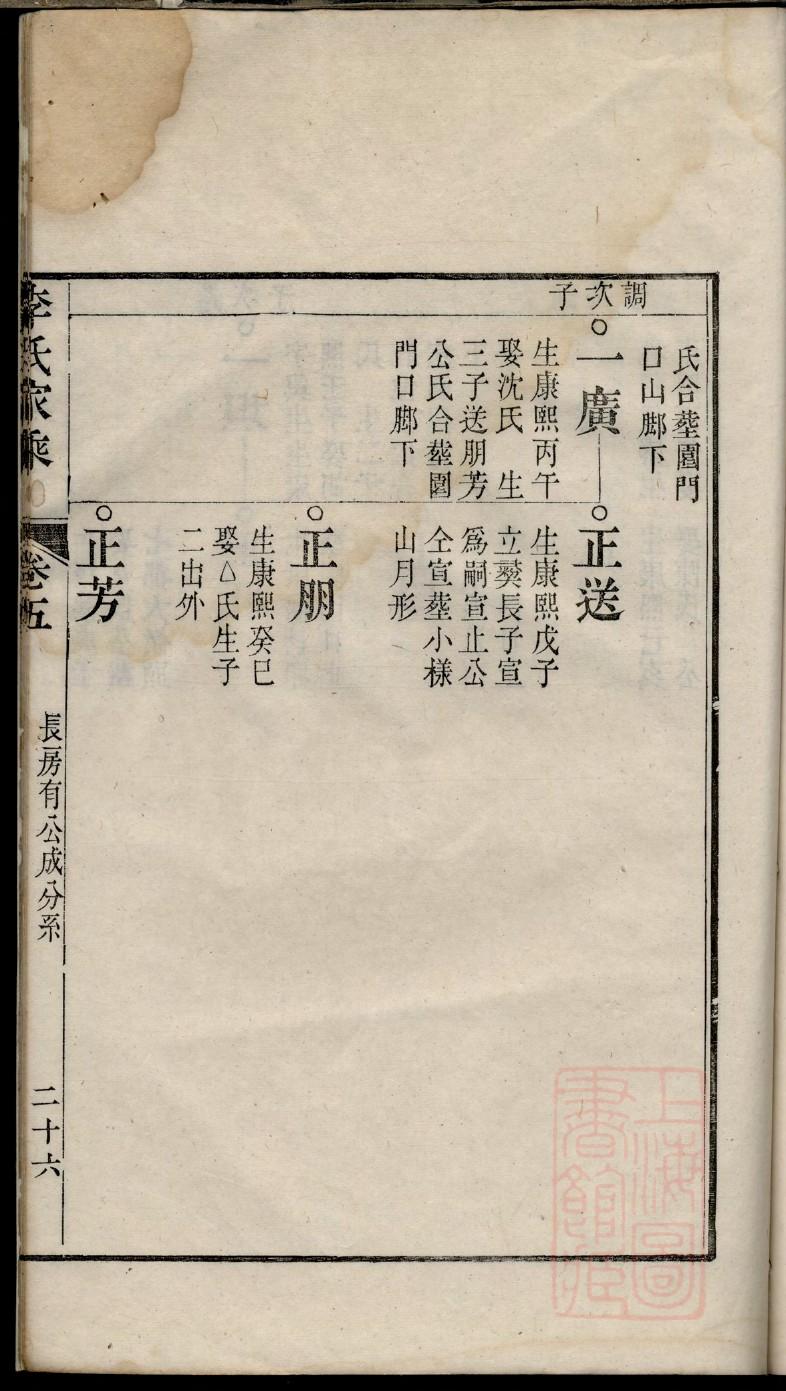 調次子
氏合塟園門
口山脚下
一廣
生康熙丙午
娶沈氏 生
三子送朋芳
公氏合塟園
門口脚下
正送
生康熙戊子
立䕫長子宣
爲嗣宣止公
仝宣塟小様
山月形
正朋
生康熙癸巳
娶△氏生子
二出外
正芳
李氏家乘
卷五
長房有公成分系
二十六
上海圖
書館藏